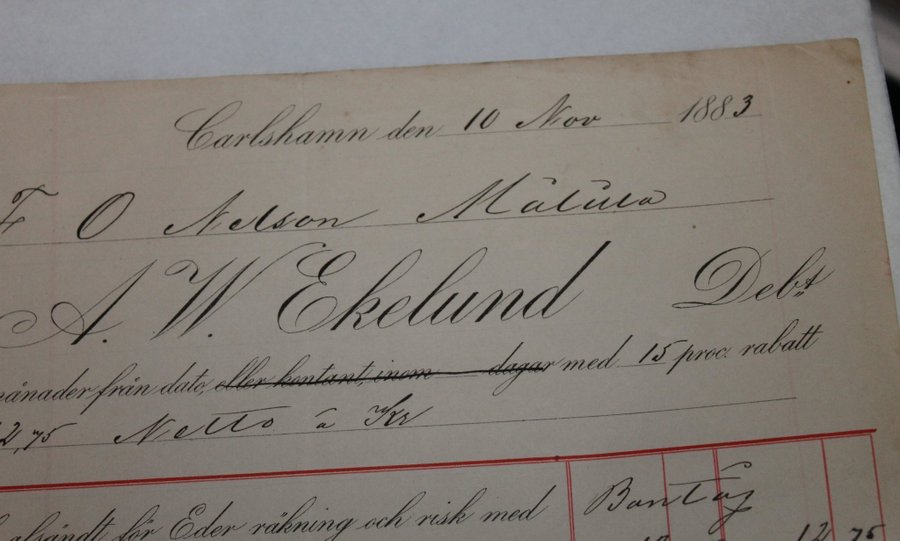 Carlshamn den 10 Nov 1883
F O Nelson
A. W. Ekelund Debt
månader från dato, eller kontant, inom dagar med 15 proc. rabatt
2,75 Netto a Kr
afsändt för Eder räkning och risk med Bantåg
12 75